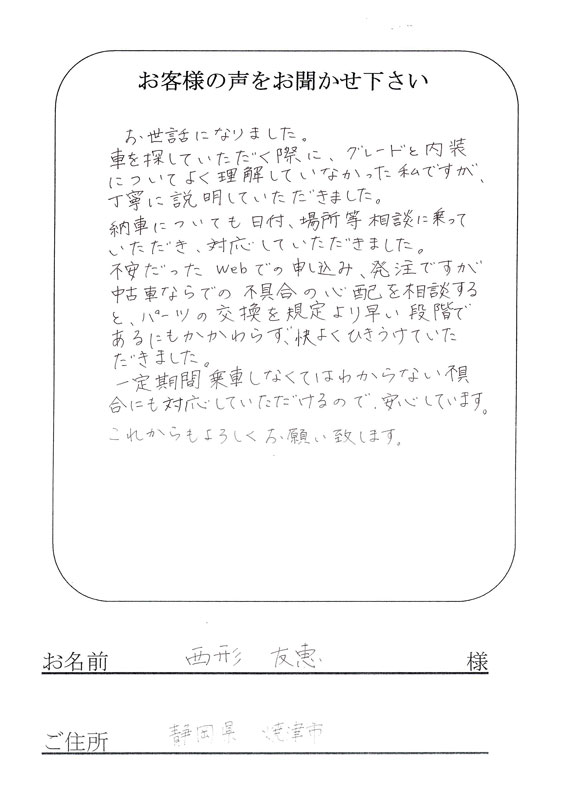 お客様の声をお聞かせ下さい
お世話になりました。
車を探していただく際に、グレードと内装
についてよく理解していなかった私ですが、
丁寧に説明していただきました。
納車についても日付、場所等相談に乗って
いただき、対応していただきました。
不安だったWebでの申し込み、発注ですが
中古車ならでの不具合の心配を相談する
と、パーツの交換を規定より早い段階で
あるにもかかわらず、快よくひきうけていた
だきました。
一定期間乗車しなくてはわからない不具
合にも対応していただけるので、安心しています。
これからもよろしくお願い致します。
お名前 西形 友恵 様
ご住所 静岡県 焼津市